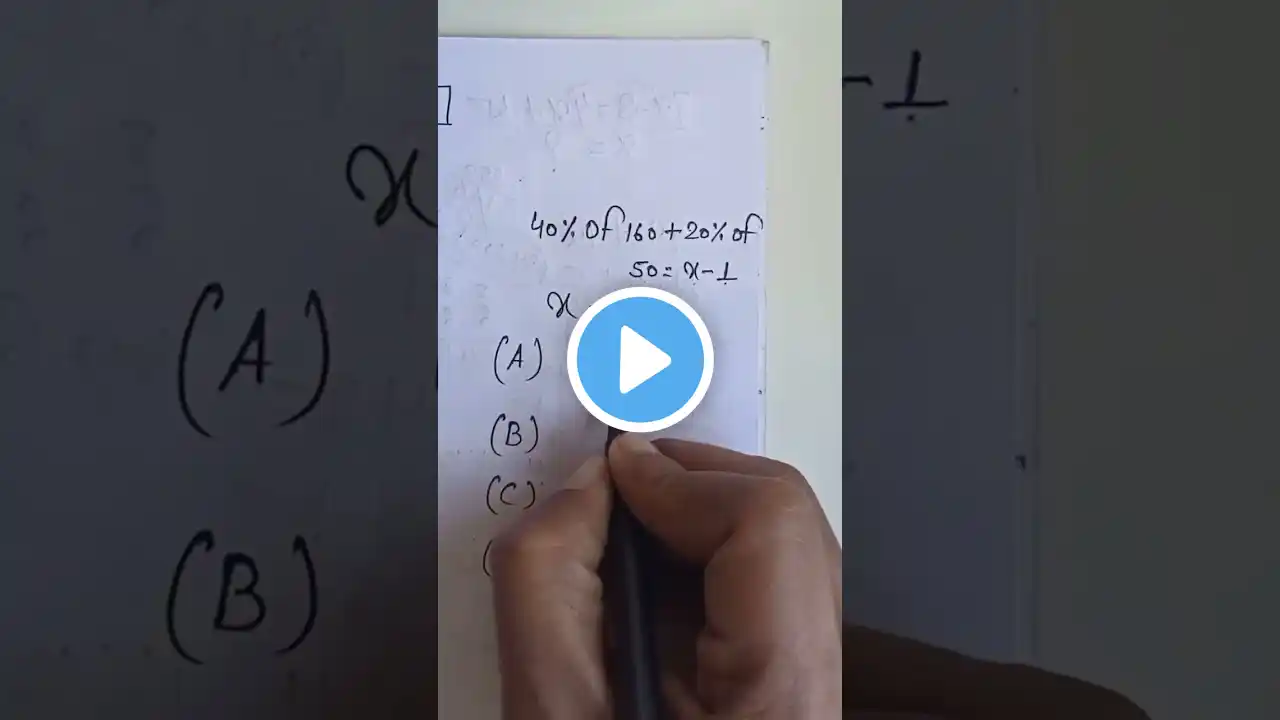 40% of 160 + 20% of
50 = x - 1
x
(A)
(B)
(C)